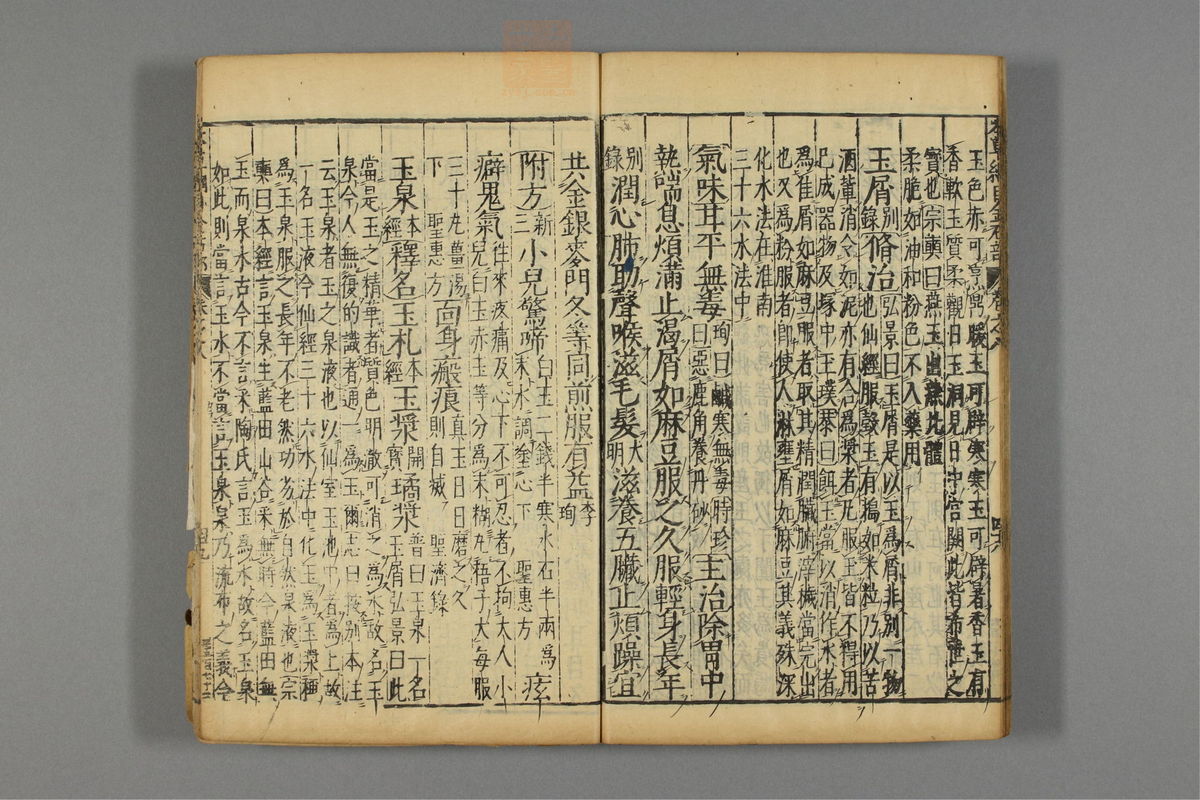 本草綱目金石部 卷之八 四十八
玉色亦可烹鼎暖玉可辟寒寒玉可辟暑香玉有
香軟玉質柔觀日玉洞見日中宮闕此皆希世之
寶也宗奭曰燕玉出燕北體
柔脆如油和粉色不入藥用
玉屑別錄脩治弘景曰玉屑是以玉為屑非別一物
也仙經服瑴玉有搗如米粒乃以苦
酒輩消令如泥亦有合為漿者凡服玉皆不得用
已成器物及塚中玉璞恭曰餌玉當以消作水者
為佳屑如麻豆服者取其精潤臟腑滓穢當完出
也又為粉服者卽使人淋壅屑如麻豆其義殊深
化水法在淮南
三十六水法中
氣味甘平無毒珣曰鹹寒無毒時珍曰惡鹿角養丹砂主治除胃中
熱喘息煩滿止渴屑如麻豆服之久服輕身長年
別錄潤心肺助聲喉滋毛髮大明滋養五臟止煩躁宜
共金銀麥門冬等同煎服有益李珣
附方新三小兒驚啼白玉二錢半寒水石半兩為末水調塗心下 聖惠方痃
癖鬼氣往來疼痛及心下不可忍者不拘大人小兒白玉赤玉等分為末糊丸梧子大每服
三十丸薑湯下 聖惠方面身瘢痕真玉日日磨之久則自滅 聖濟錄
玉泉本經釋名玉札本經玉漿開寶璚漿普曰玉泉一名玉屑弘景曰此
當是玉之精華者質色明澈可消之為水故名玉
泉今人無復的識者通一為玉爾志曰按別本注
云玉泉者玉之泉液也以仙室玉池中者為上故
一名玉液今仙經三十六水法中化玉為玉漿稱
為玉泉服之長年不老然功劣於自然泉液也宗
奭曰本經言玉泉生藍田山谷采無時今藍田無
玉而泉水古今不言采陶氏言玉為水故名玉泉
如此則當言玉水不當言玉泉泉乃流布之義今